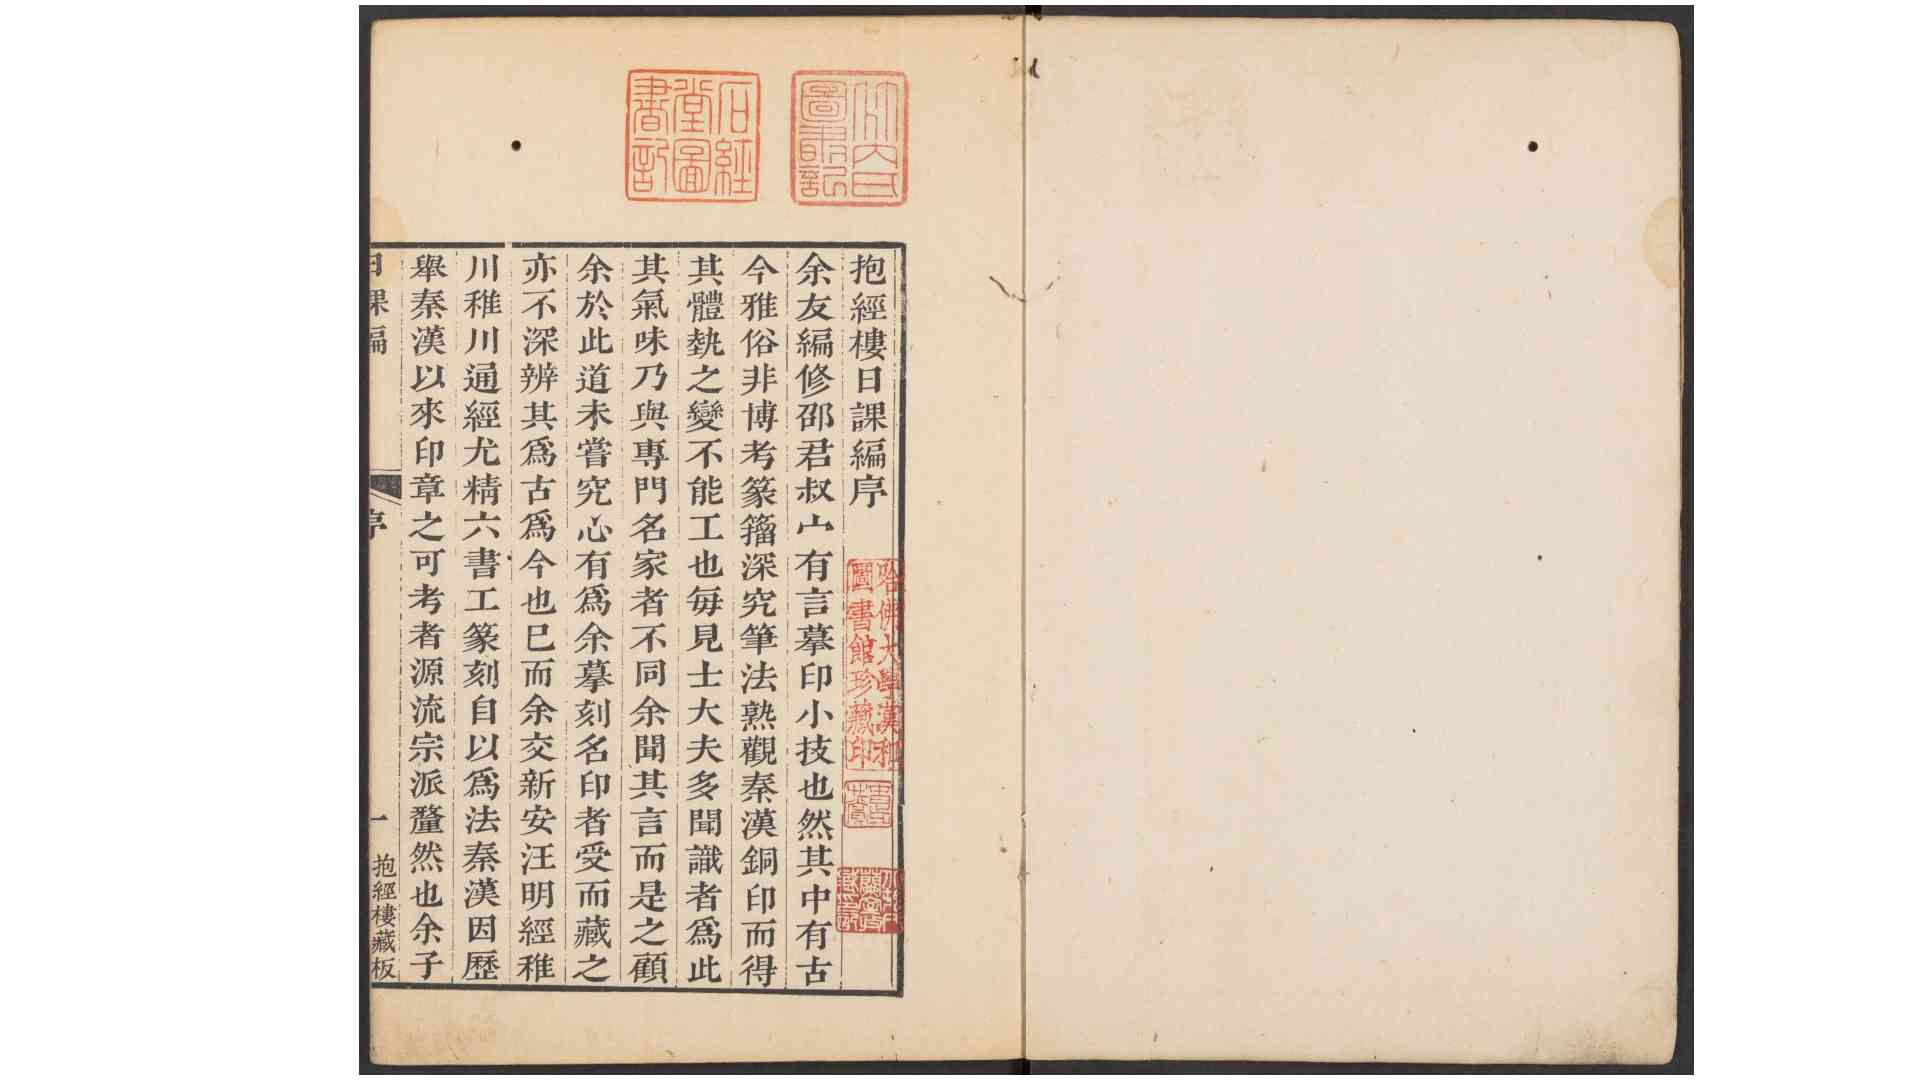 抱經樓日課編序
余友編修邵君叔宀有言摹印小技也然其中有古
今雅俗非博考篆籀深究筆法熟觀秦漢銅印而得
其體埶之變不能工也每見士大夫多聞識者爲此
其氣味乃與專門名家者不同余聞其言而是之顧
余於此道未嘗究心有爲余摹刻名印者受而藏之
亦不深辨其爲古爲今也巳而余交新安汪明經稚
川稚川通經尤精六書工篆刻自以爲法秦漢因歷
舉秦漢以來印章之可考者源流宗派釐然也余子
日課編
序
一
抱經樓藏板
石經
堂圖
書記
圖書記
哈佛大學漢和
圖書館珍藏印